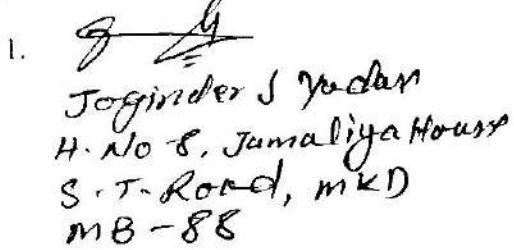 1.
Joginder S Yadav
H. No 8, Jamaliya House
S.T. Road, MKD
MB-88